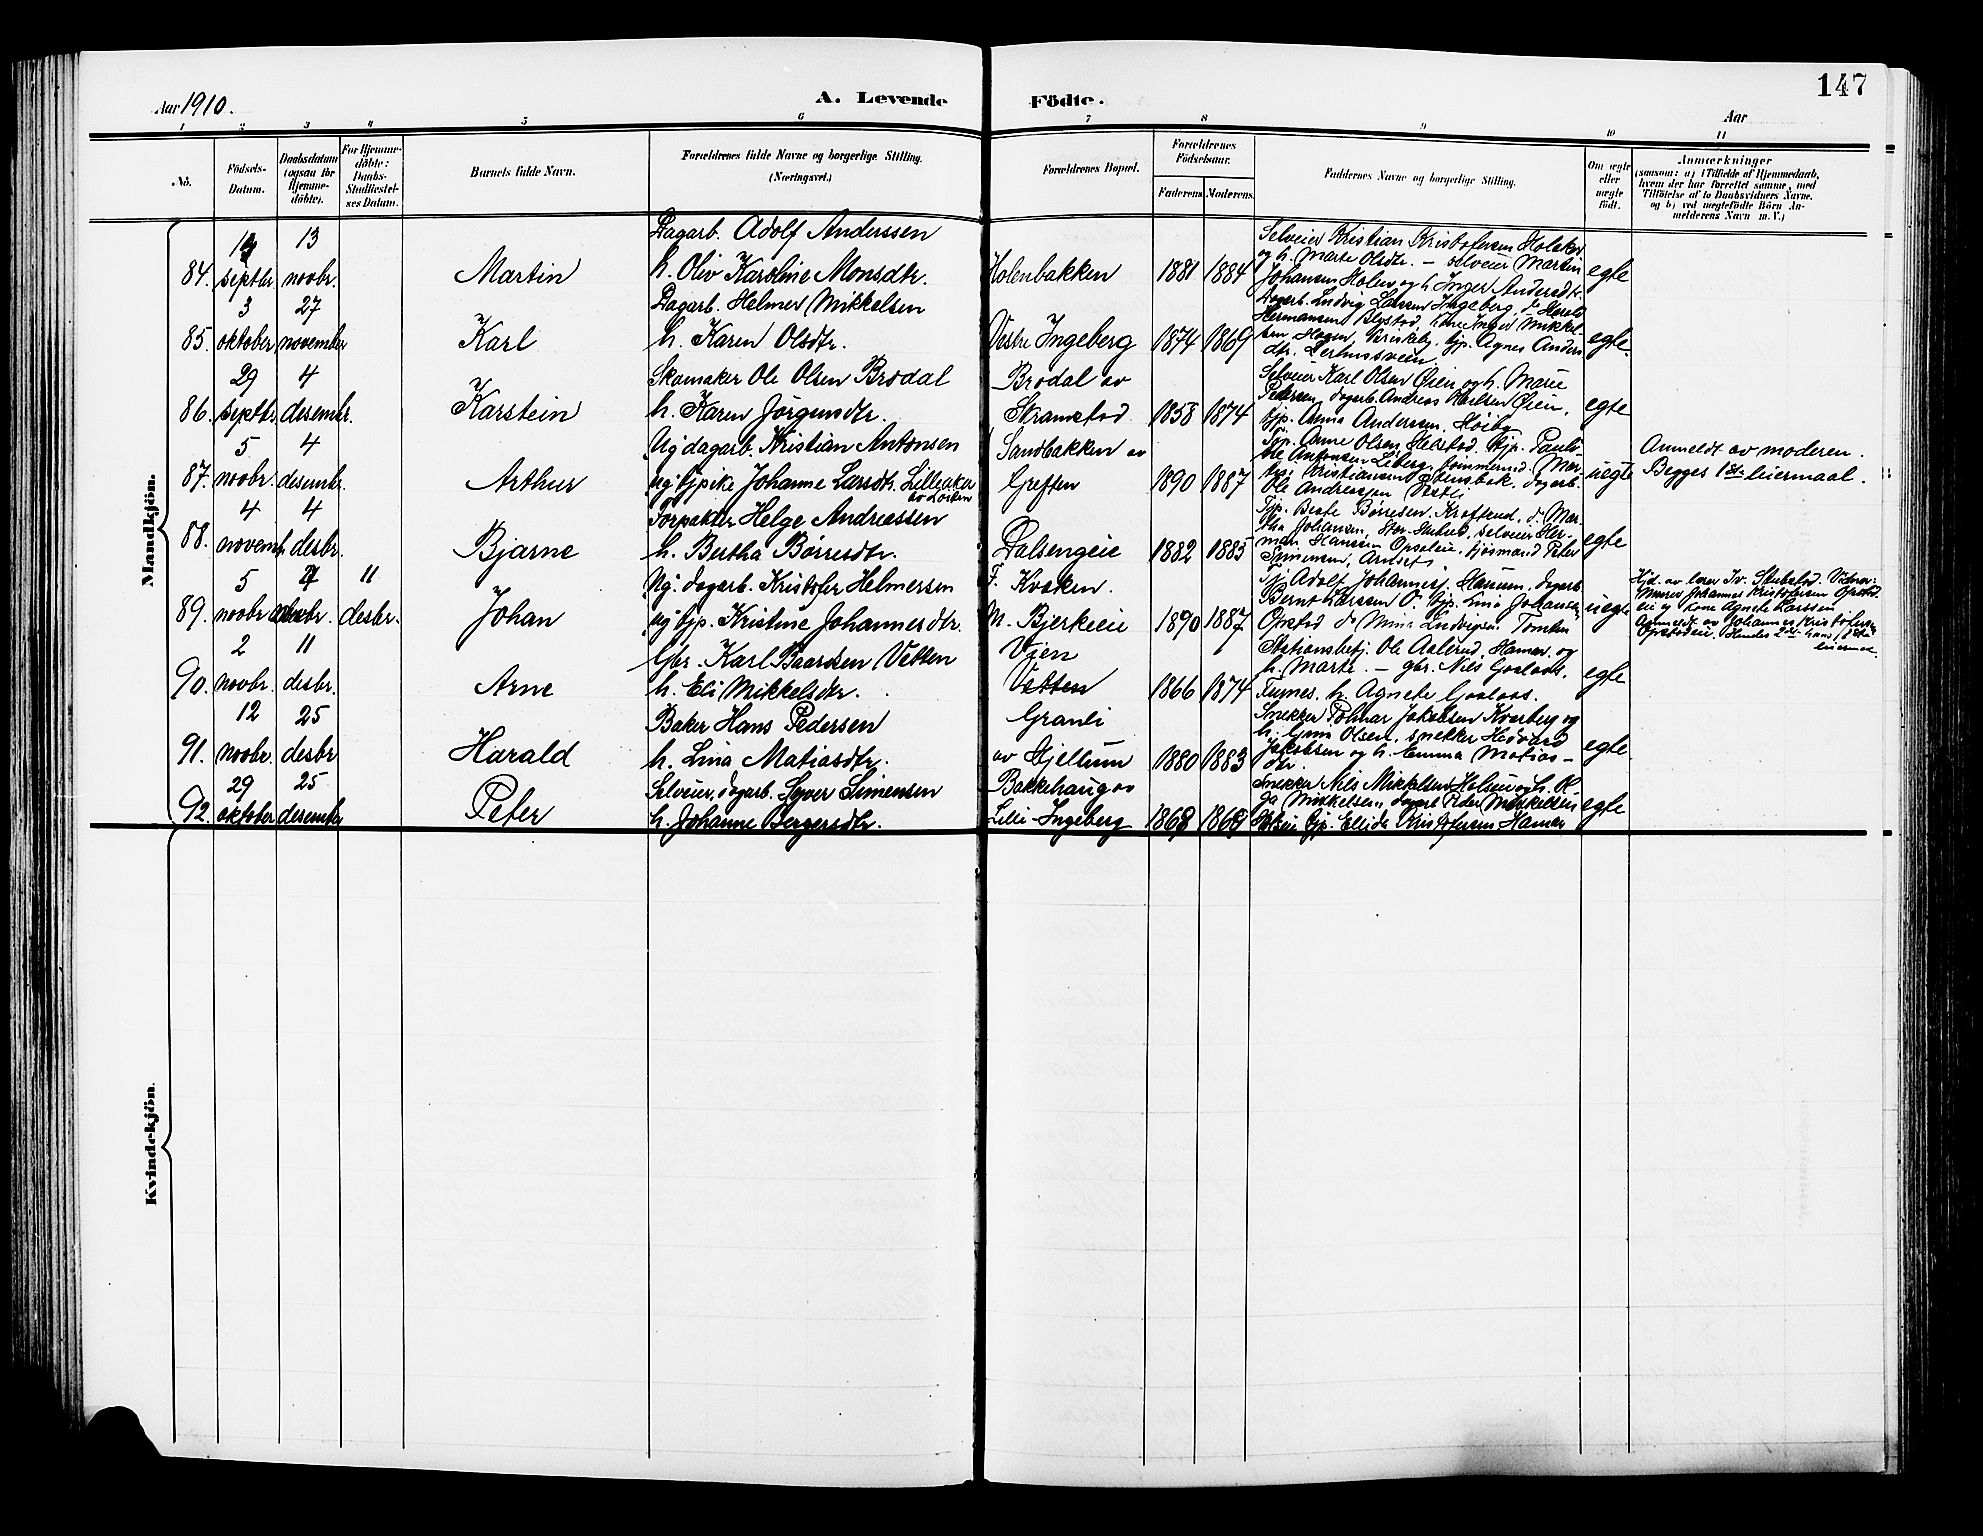 147
Aar 1910.
A. Levende Födte.
Aar
1 2 3 4 5 6 7 8 9 10 11
No.
Födsels-Datum.
Daabsdatum (ogsaa for Hjemme-döbte).
For Hjemme-döbte: Daabs-Stadfæstel-ses Datum.
Barnets fulde Navn.
Forældrenes fulde Navne og borgerlige Stilling. (Næringsvei.)
Forældrenes Bopæl.
Forældrenes Födselsaar.
Faderens Moderens
Faddernes Navne og borgerlige Stilling.
Om ægte eller uægte födt.
Anmærkninger
(saasom: a) i Tilfælde af Hjemmedaab, hvem der har forrettet samme, med Tilföielse af to Daabsvidners Navne, og b) ved uægtefödte Börn An-melderens Navn m. V.)
Mandkjön.
84. septbr. 13 novbr. Martin
Dagarb. Adolf Anderssen
h. Oliv Karoline Monsdtr.
Holenbakken 1881 1884
Selveier Kristian Kristofersen Holaker
og h. Marte Olsdtr. - selveier Martin
Johansen Holen og h. Inger Andersdtr.
egte
85. 3 oktober 27 november Karl
Dagarb. Helmer Mikkelsen
h. Karen Olsdtr.
Vestre Ingeberg 1874 1869
Dagarb. Ludvig Larssen Ingeberg, do Harald
Hermansen Blystad, kone Inger Mikkel-
sen Hagen, pj. Agnes Anders
dtr. Lerhusveien
egte.
86. 29 septbr. 4 desembr. Karstein
Skomaker Ole Olsen Brodal
h. Karen Jörgensdtr.
Brodal av
Skramstad 1858 1874
Selveier Karl Olsen Öien og h. Marie
Petersen, dagarb. Andreas Karlsen Öien,
pj. Anna Anderssen, Höiby
egte
87. 5 novbr. 4 desembr. Arthur
Ug dagarb. Kristian Antonsen
ug tjpike Johanne Larsdtr. Lilleaker
Sandbakken av
Greften 1890 1887
Tjp. Anne Olsen Helstad, tjp. Pauli-
Kristiansen Stensbak, dagarb.
Ole Andreassen
uegte
Anmeldt av moderen.
Begges 1ste leiermaal.
88. 4 novemb. 4 desbr. Bjarne
Forpakter Helge Andreassen
h. Bertha Börresdtr.
Dalsengeie 1882 1885
Tjp. Beate Börresen, Krafterud, do Mar-
tha Johansen, selveier Her-
man Hanssen Opsaleie, Peter
Simensen, Arnset
egte
89. 5 novbr. novbr. 11 desbr. Johan
Ug. dagarb. Kristofer Helmersen
ug tjp. Kristine Johannesdtr.
F. Kvaken.
M. Bjerkeeie 1890 1887
Tj. Adolf Johannesj. Hanum, dagarb.
Bernt Larssen O. tjp. Lina Johansen
Opstad do Mina Ludvigsen Tomten
uegte
Hjd. av lærer Iv. Skubstad. Vidner:
Murer Johannes Kristofersen Opstad
eie og kone Agnete Larssen
Anmeldt av Johannes Kristofersen
Opstadeie. Hendes 2det hans 1ste
leiermaal.
90. 2 novbr. 11 desbr. Arne
Gbr. Karl Baardsen Vetten
h. Eli Mikkelsdtr.
Vien
Vetten 1866 1874
Stationsbetj. Ole Aalerud, Hamar. og
h. Marte. - gbr. Nils Gaalaas,
Furnes, h. Agnete Gaalaas.
egte
91. 12 novbr. 25 desbr Harald
Baker Hans Pedersen
h. Lina Matiasdtr.
Granli
av Hjellum 1880 1883
Snekker Jakobsen Kvarberg og
h. Olsen, snekker Hedvard
Jakobsen og h. Emma Matias-
dtr.
egte
92 29 oktober 25 desembr Peter
Selveier, dagarb. Syver Simensen
h. Johanne Bergersdtr.
Bakkehaug av
Lille Ingeberg 1868 1869
Snekker Nils Mikkelsen Holsen og h. K
Mikkelsen, dagarb Peder Mikkelsen
tjp. Ellida Kristofersen Hamar
egte
Kvindekjön.